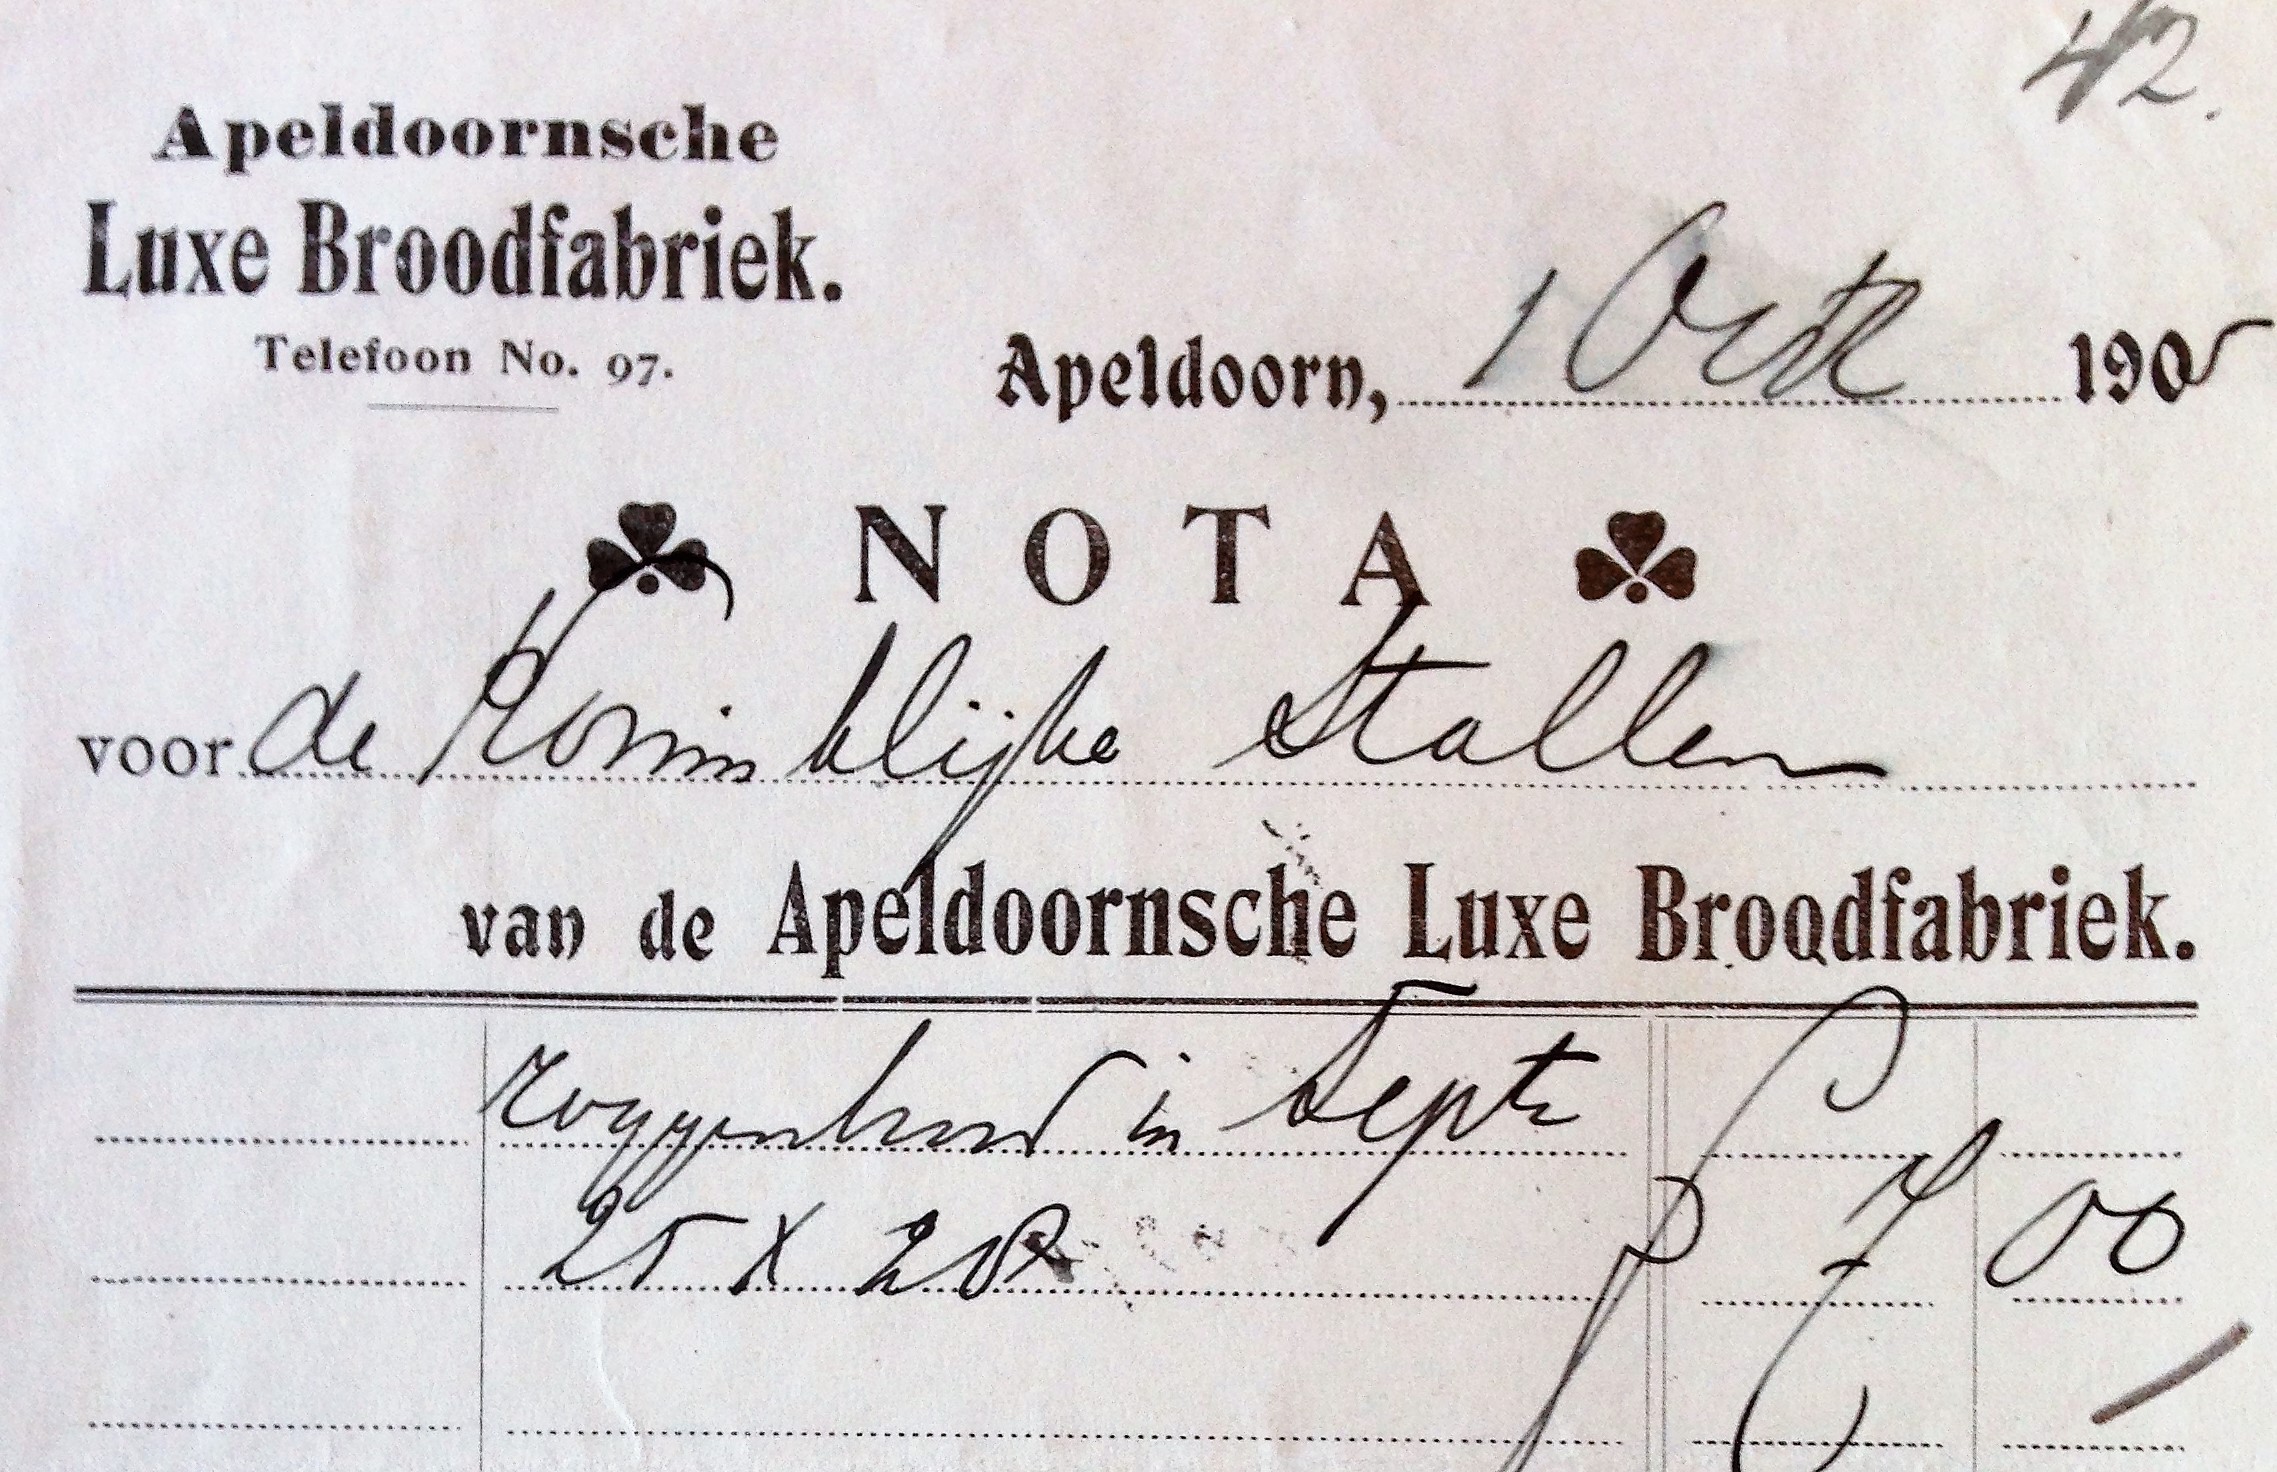 42.
Apeldoornsche
Luxe Broodfabriek.
Telefoon No. 97.
Apeldoorn, 1 Octr 1905
NOTA
voor de Koninklijke Stallen
van de Apeldoornsche Luxe Broodfabriek.
roggenbrood in Septr
25 X 28 ƒ 7 00